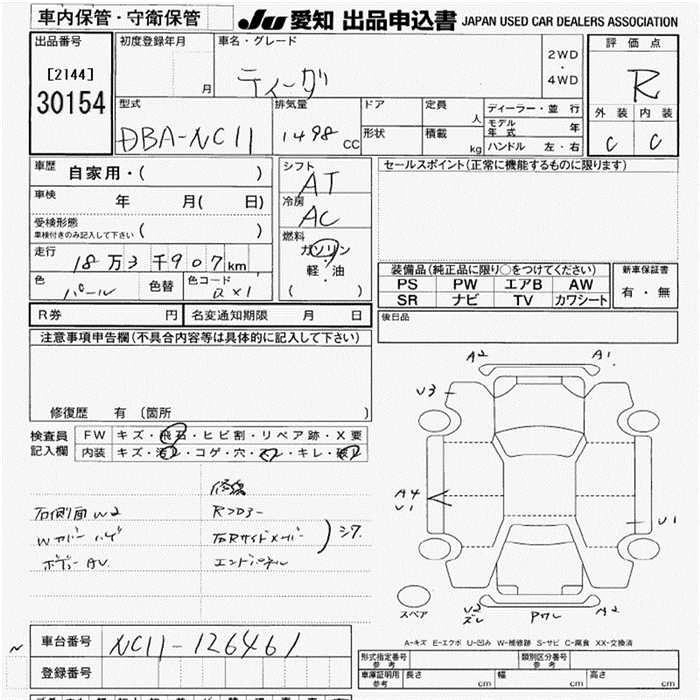 車内保管・守衛保管
JU 愛知 出品申込書 JAPAN USED CAR DEALERS ASSOCIATION
出品番号
[2144]
30154
初度登録年月
月
車名・グレード
ティーダ
2WD
・
4WD
評価点
R
外装 内装
C C
型式
DBA-NC11
排気量
1498 CC
ドア
形状
定員
人
積載
kg
ディーラー・並行
モデル年式 年
ハンドル 左・右
車歴 自家用・( )
車検 年 月( 日)
受検形態
車検付きのみ記入して下さい ( )
走行
18万3千907km
色
パール
色替
色コード
QX1
シフト
AT
冷房
AC
燃料
ガソリン
・
軽・油
( )
セールスポイント(正常に機能するものに限ります)
装備品(純正品に限り○をつけてください)
PS PW エアB AW
SR ナビ TV カワシート
新車保証書
有・無
R券 円 名変通知期限 月 日
後日品
注意事項申告欄(不具合内容等は具体的に記入して下さい)
修復歴 有 (箇所 )
検査員
記入欄
FW キズ・飛石・ヒビ割・リペア跡・X要
内装 キズ・汚レ・コゲ・穴・スレ・キレ・破レ
修復
右側面 W2
Rフロアー
Wカバー ハゲ
右Rサイドメンバー
シワ
ボデー AU
エンドパネル
A2 A1
V3
A4
V1
V1
V2
ズレ
Pワレ
A2
スペア
A-キズ E-エクボ U-凹み W-補修跡 S-サビ C-腐食 XX-交換済
車台番号
NC11-126461
登録番号
形式指定番号
参考
類別区分番号
参考
車庫証明用
参考
長さ cm 幅 cm 高さ cm